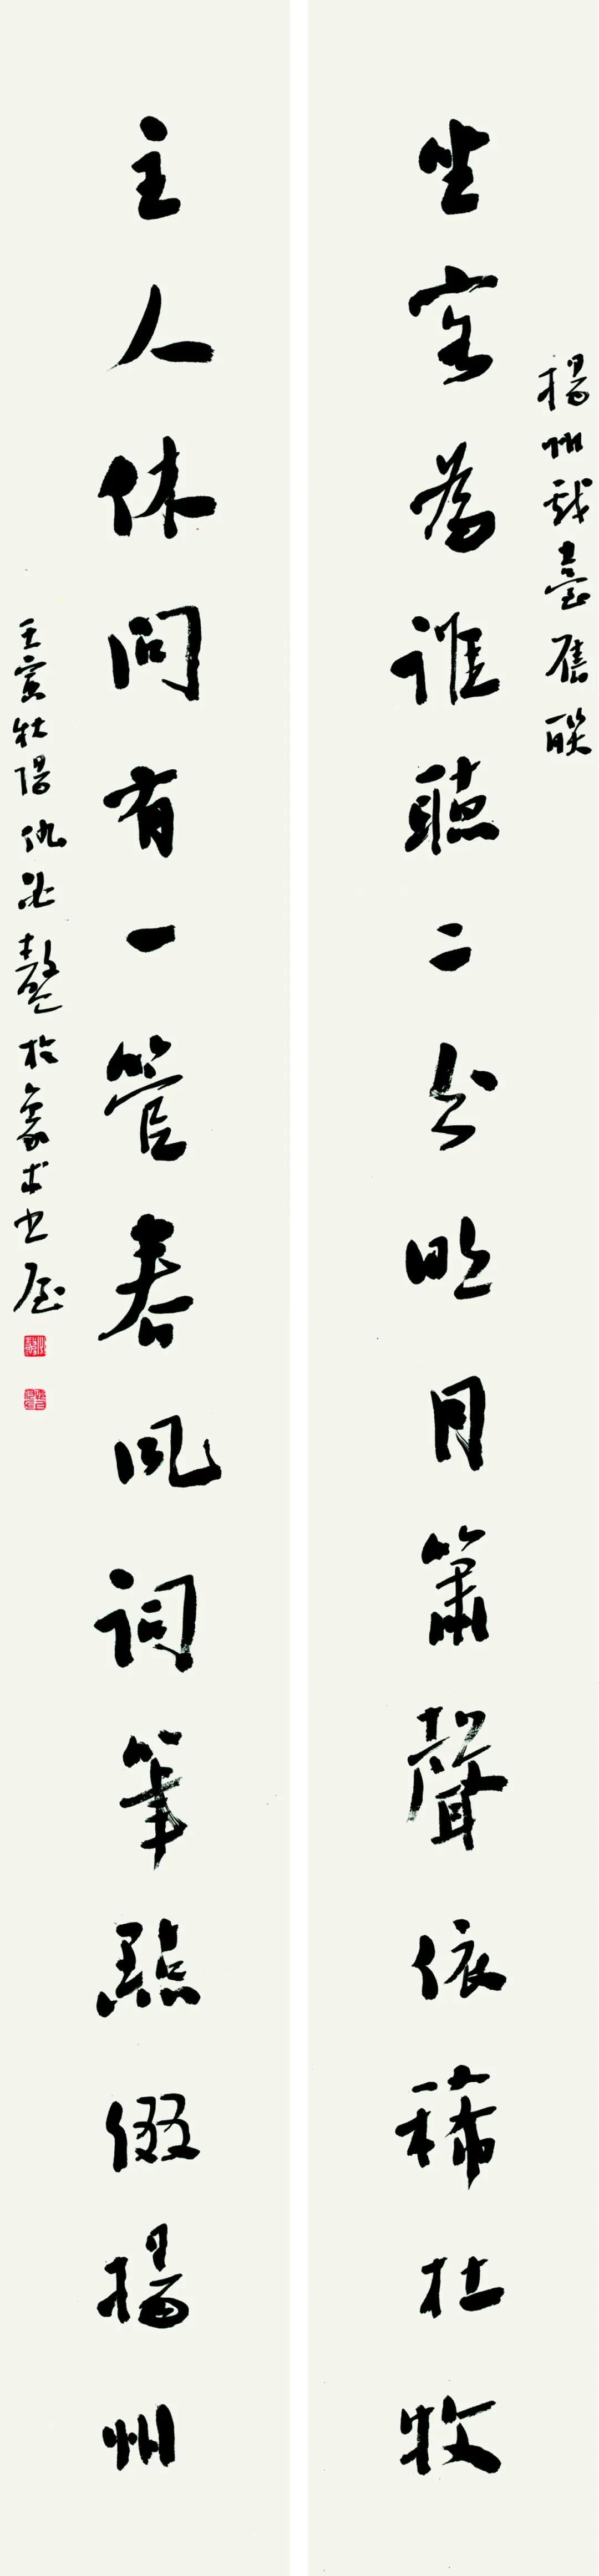 揚州戲臺舊联
坐客為誰聽二分明月簫聲依稀杜牧
主人休問有一管春風詞筆點綴揚州
壬寅 陽仇必鼇於 書屋